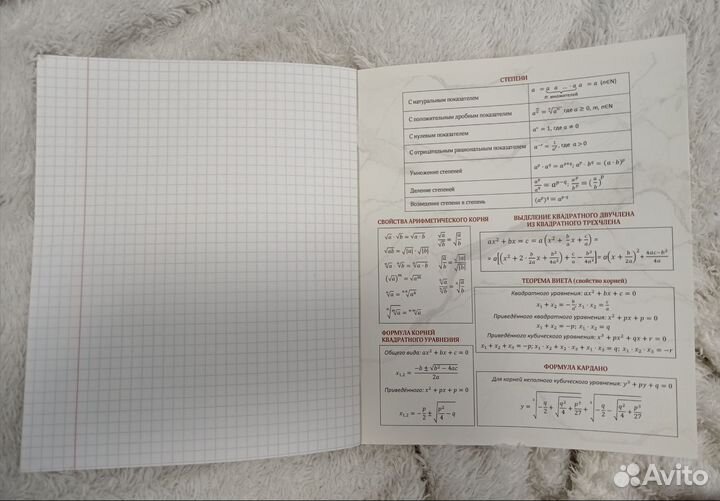 СТЕПЕНИ
С натуральным показателем
a = a a ... a a = a (n∈N)
n множителей
С положительным дробным показателем
где a ≥ 0, m, n∈N
С нулевым показателем
a° = 1, где a ≠ 0
С отрицательным рациональным показателем
a⁻ʳ = 1/aʳ, где a>0
Умножение степеней
aᵖ · a^q = a^(p+q); aᵖ · bᵖ = (a · b)ᵖ
Деление степеней
aᵖ/a^q = a^(p−q); aᵖ/bᵖ = (a/b)ᵖ
Возведение степени в степень
(aᵖ)^q = a^(p·q)
СВОЙСТВА АРИФМЕТИЧЕСКОГО КОРНЯ
√a · √b = √a · b
√a/√b = √a/b
√ab = √|a| · √|b|
√a/b = √|a|/√|b|
ⁿ√a · ⁿ√b = ⁿ√a · b
ВЫДЕЛЕНИЕ КВАДРАТНОГО ДВУЧЛЕНА
ИЗ КВАДРАТНОГО ТРЕХЧЛЕНА
ax² + bx = c = a(x² + b/a x + c/a) =
= a[(x² + 2 · b/2a x + b²/4a²) + c/a − b²/4a²] = a(x + b/2a)² + 4ac−b²/4a
ТЕОРЕМА ВИЕТА (свойство корней)
Квадратного уравнения: ax² + bx + c = 0
x₁ + x₂ = −b/a, x₁ · x₂ = c/a
Приведённого квадратного уравнения: x² + px + p = 0
x₁ + x₂ = −p; x₁ · x₂ = q
Приведённого кубического уравнения: x³ + px² + qx + r = 0
x₁ + x₂ + x₃ = −p; x₁ · x₂ + x₂ · x₃ + x₁ · x₃ = q; x₁ · x₂ · x₃ = −r
ФОРМУЛА КОРНЕЙ
КВАДРАТНОГО УРАВНЕНИЯ
Общего вида: ax² + bx + c = 0
x₁,₂ = −b ± √b² − 4ac / 2a
Приведённого: x² + px + p = 0
x₁,₂ = −p/2 ± √p²/4 − q
ФОРМУЛА КАРДАНО
Для корней неполного кубического уравнения: y³ + py + q = 0
y = ³√−q/2 + √q²/4 + p³/27 + ³√−q/2 − √q²/4 + p³/27
Avito